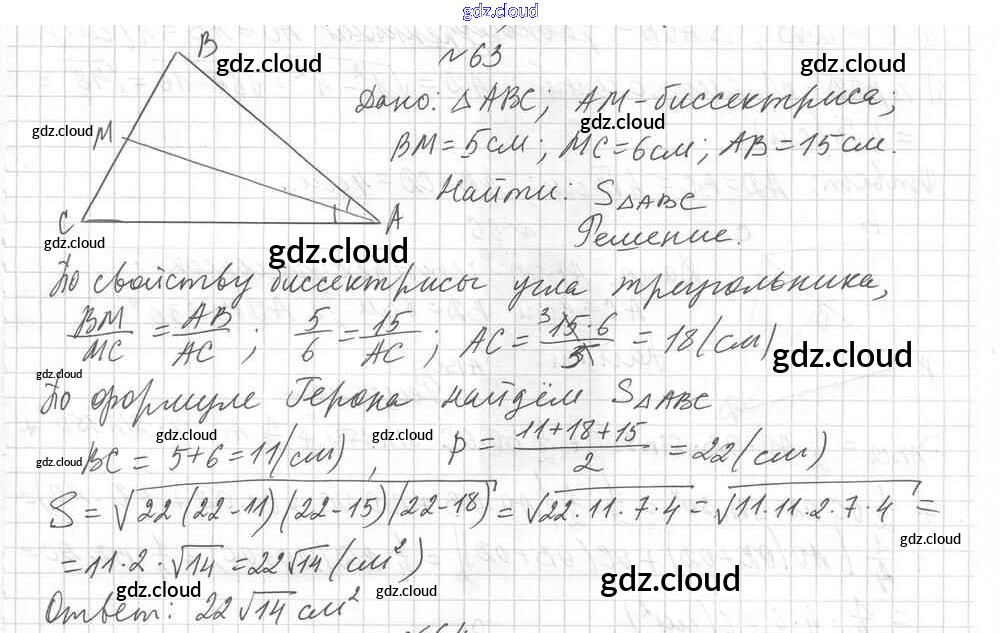 gdz.cloud
№63
B
gdz.cloud
gdz.cloud
Дано: △ABC; AM-биссектриса;
gdz.cloud
gdz.cloud
M
BM=5см; MC=6см; AB=15см.
Найти: S△ABC
C
A
gdz.cloud
Решение.
gdz.cloud
По свойству биссектрисы угла треугольника,
BM/MC = AB/AC; 5/6 = 15/AC; AC = 15·6/5 3 = 18(см)
gdz.cloud
gdz.cloud
По формуле Герона найдём S△ABC
gdz.cloud
gdz.cloud
gdz.cloud
BC = 5+6=11(см), p = (11+18+15)/2 = 22(см)
S = √22(22-11)(22-15)(22-18) = √22·11·7·4 = √11·11·2·7·4 =
gdz.cloud
= 11·2·√14 = 22√14(см²)
gdz.cloud
gdz.cloud
gdz.cloud
Ответ: 22√14 см²